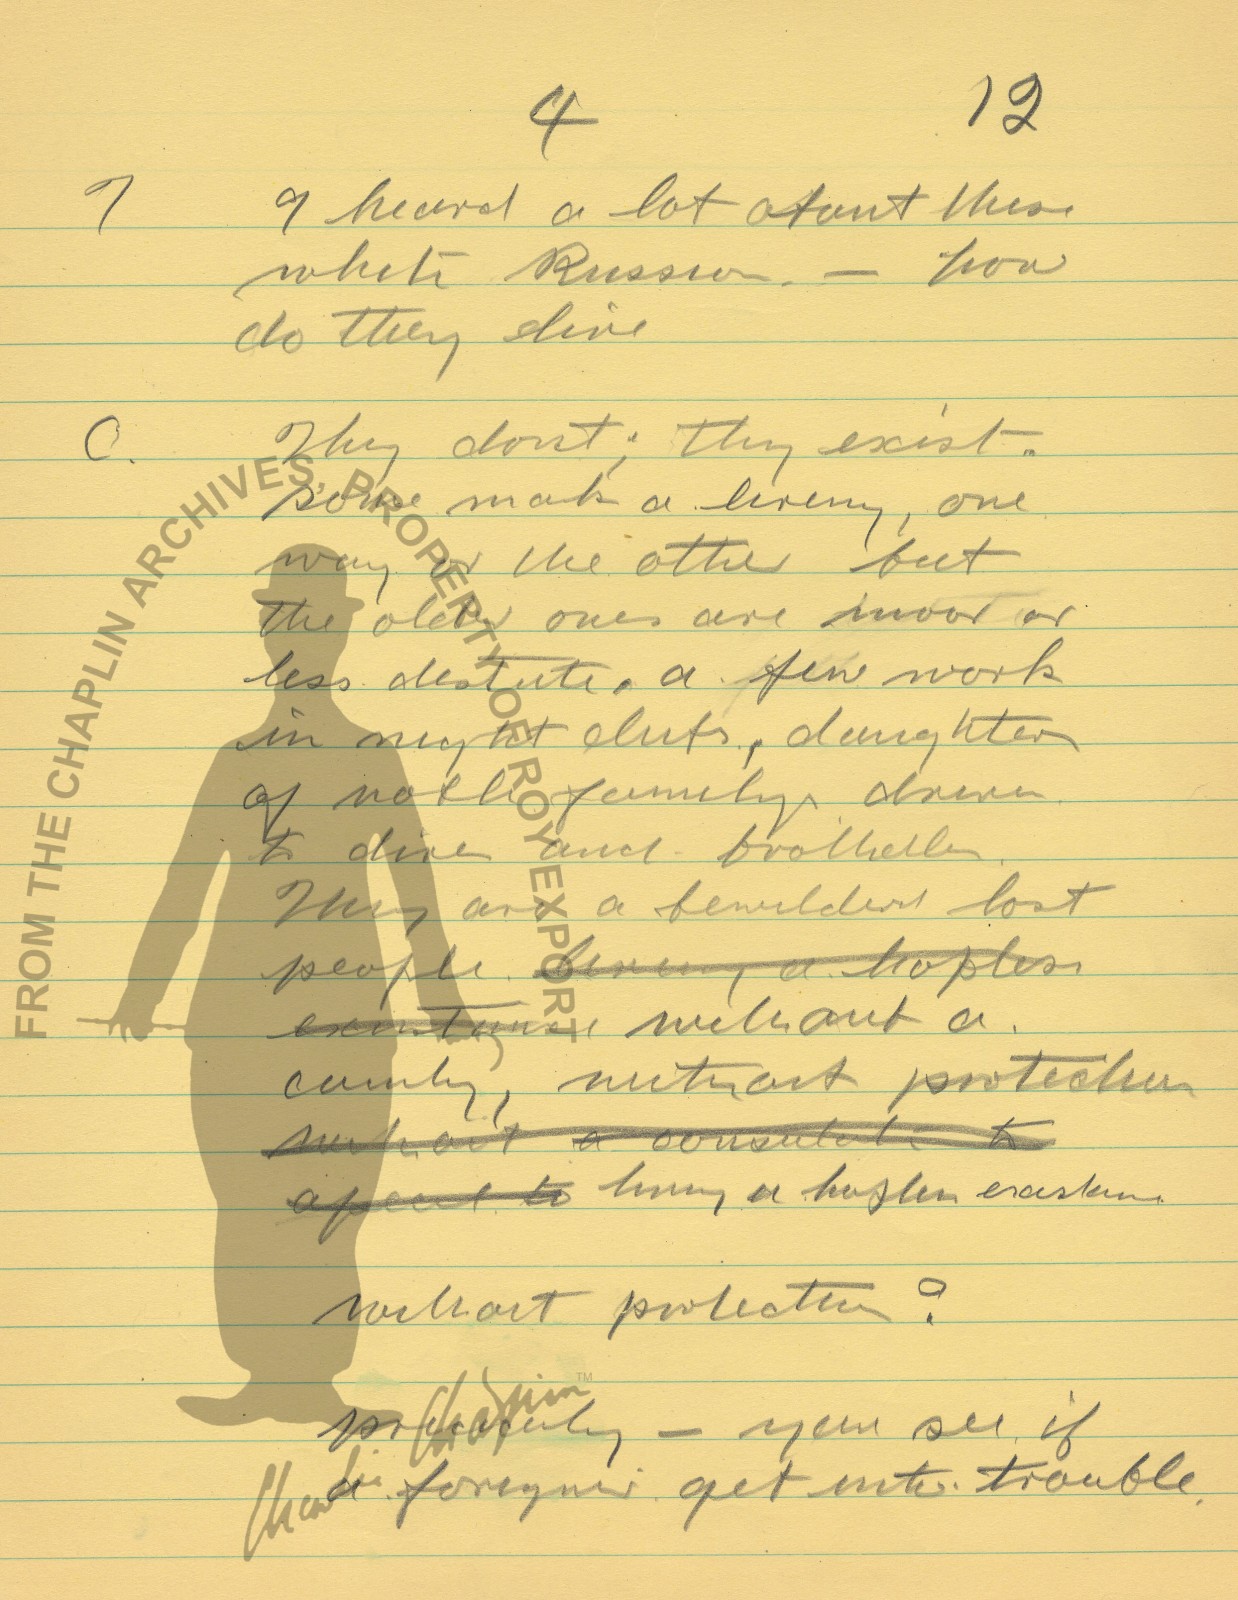 4 12
T I heard a lot about these
white Russian. — how
do they live
C. They dont; they exist.
some make a living, one
way or the other but
the older ones are moor or
less destitute. a few work
in night clubs, daughters
of noble family, driven
to dives and brothells.
They are a bewildered lost
people. living a hopless
existance without a
country, without protection
without a consulate to
appeal to living a hoplen existence.
without protection?
precisely — you see if
a foreigner get into trouble.
FROM THE CHAPLIN ARCHIVES, PROPERTY OF ROY EXPORT
Charlie Chaplin™